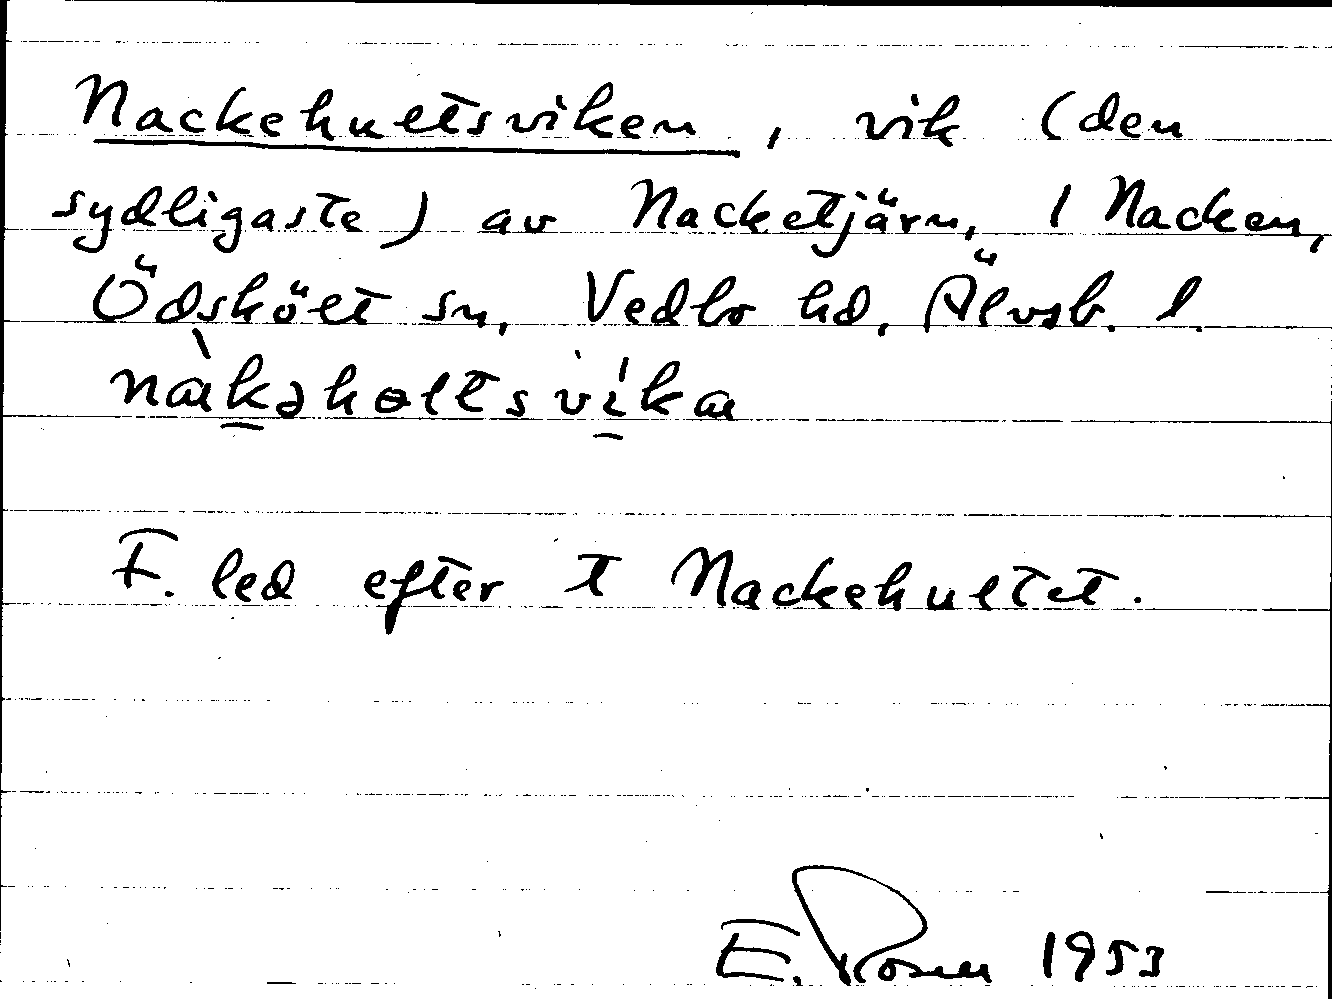 Nackehultsviken, vik (den
sydligaste) av Nacketjärn, 1 Nacken,
Ödskölt sn, Vedbo hd, Älvsb. l.
F. led efter t Nackehultet.
E. Rosen 1953